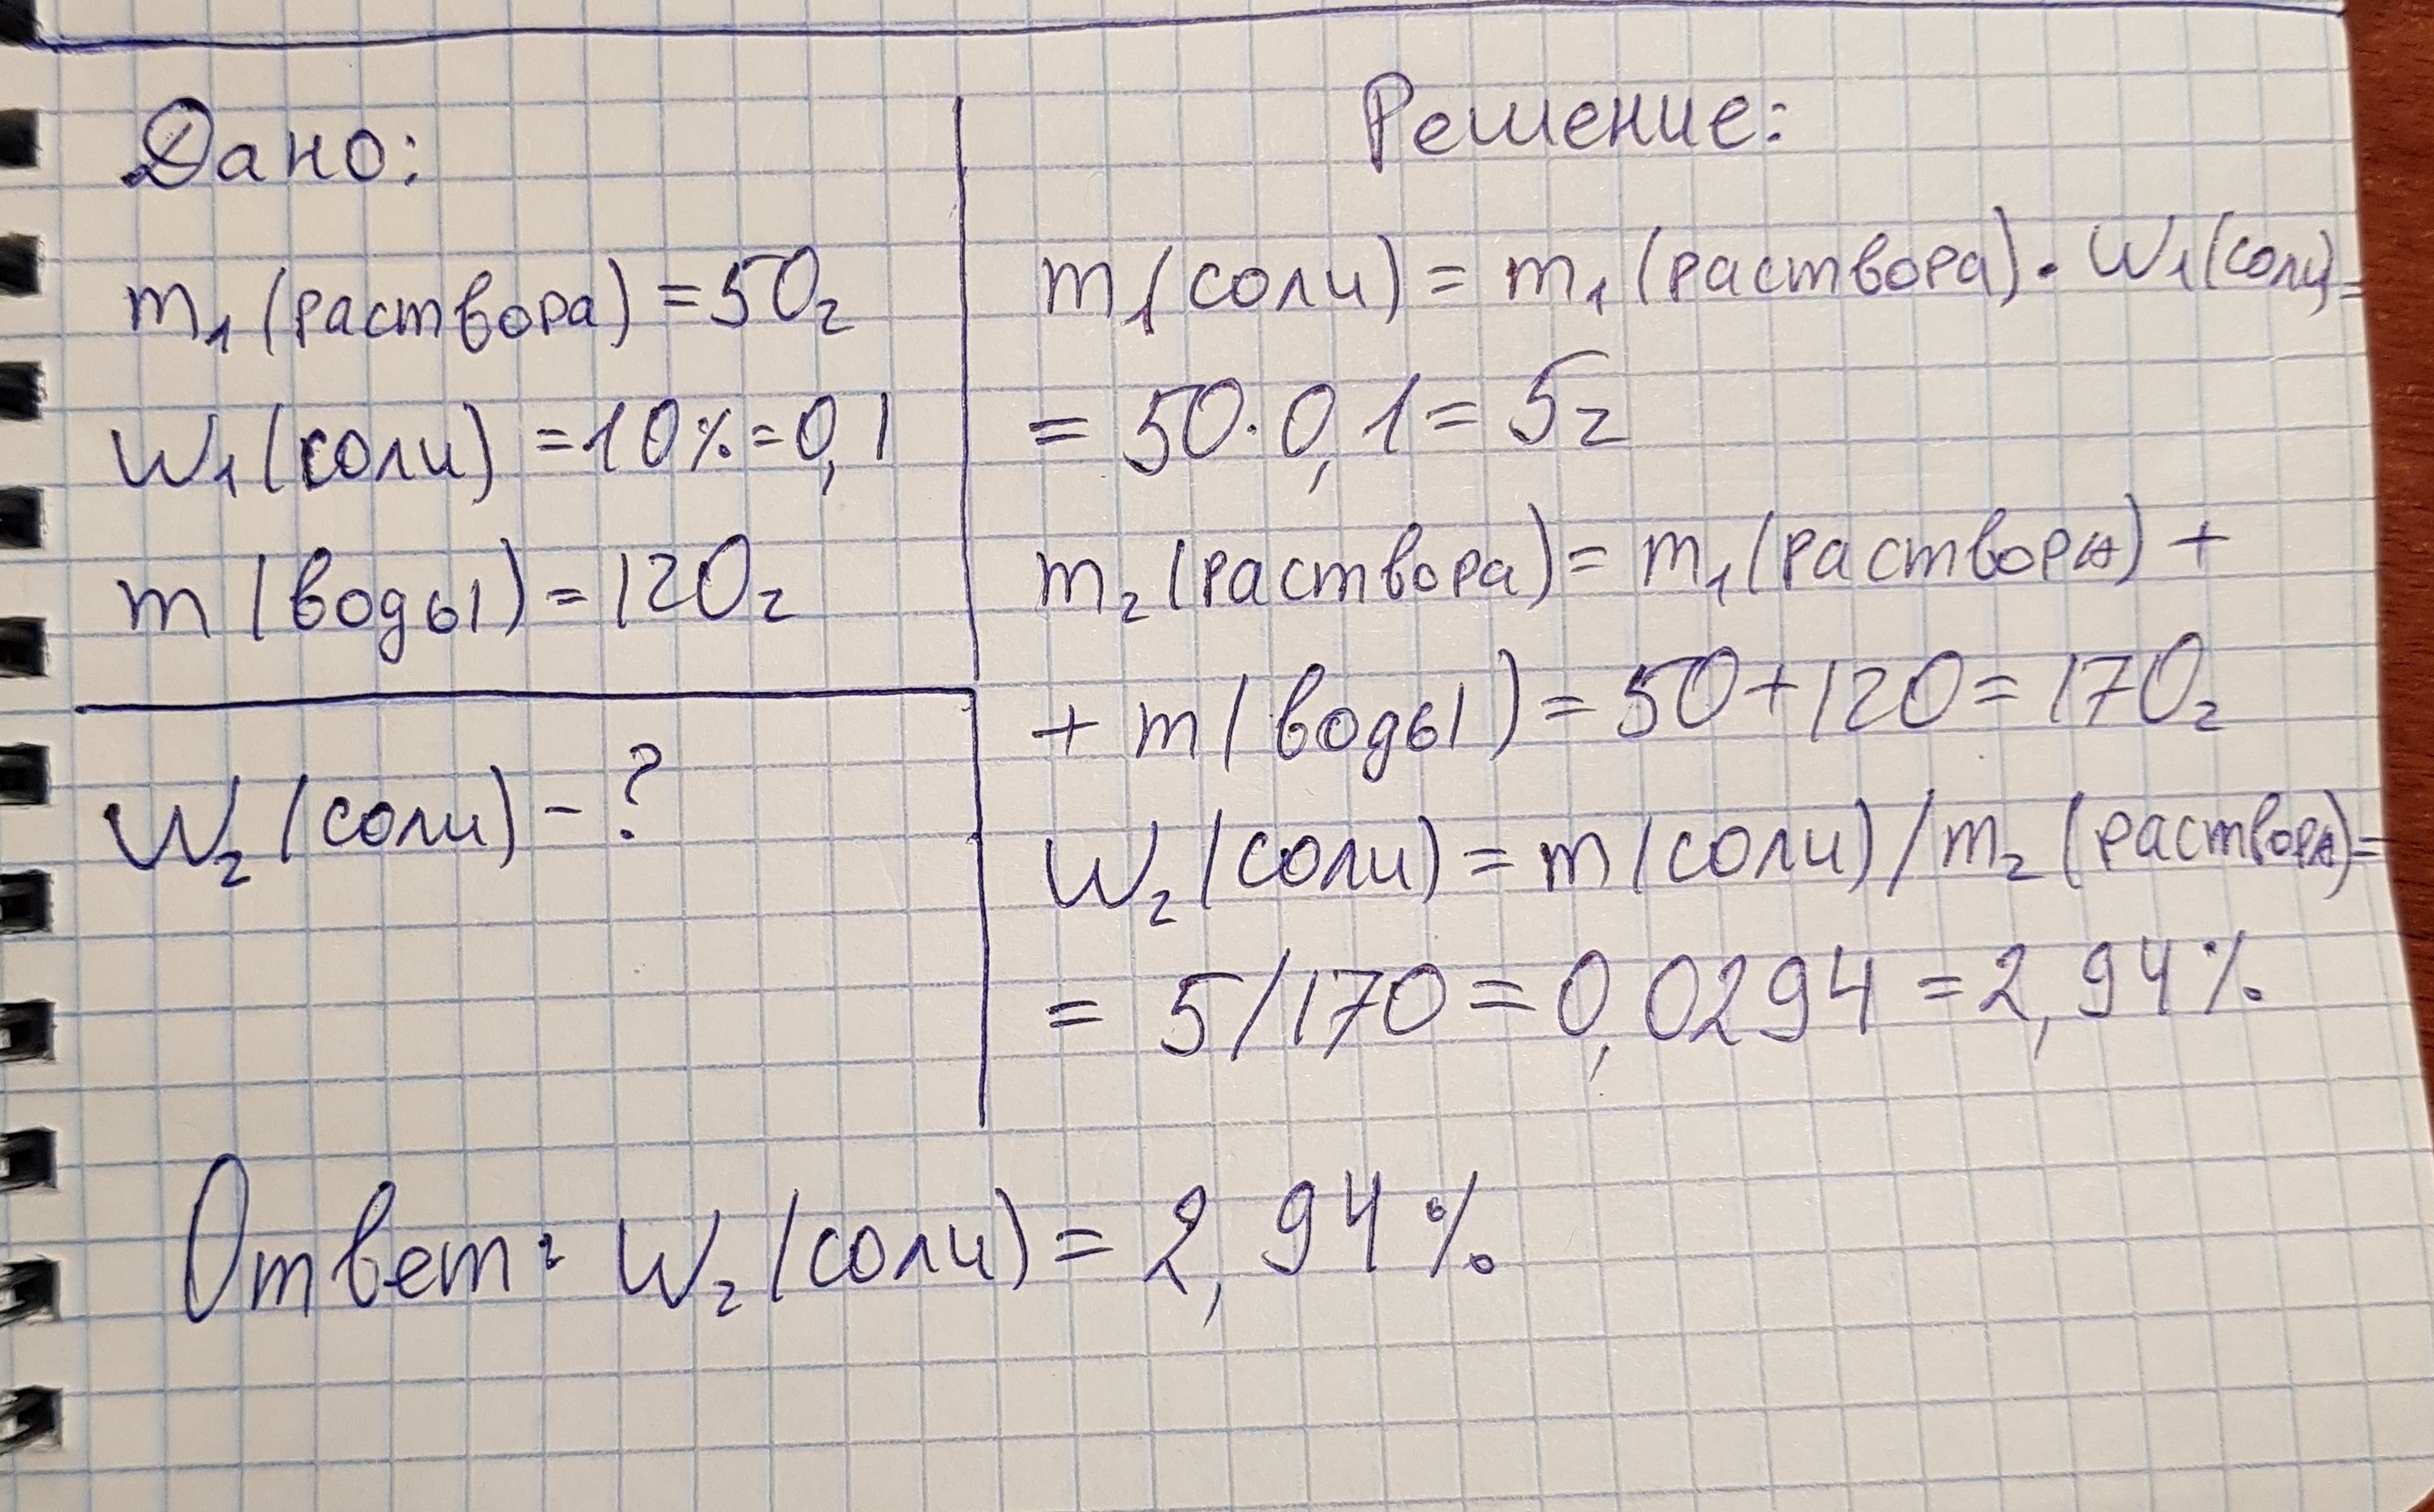 Дано:
m₁(раствора) = 50г
W₁(соли) = 10% = 0,1
m(воды) = 120г
W₂(соли) - ?
Решение:
m₁(соли) = m₁(раствора) · W₁(соли) =
= 50 · 0,1 = 5г
m₂(раствора) = m₁(раствора) +
+ m(воды) = 50 + 120 = 170г
W₂(соли) = m(соли) / m₂(раствора) =
= 5/170 = 0,0294 = 2,94%
Ответ: W₂(соли) = 2,94%